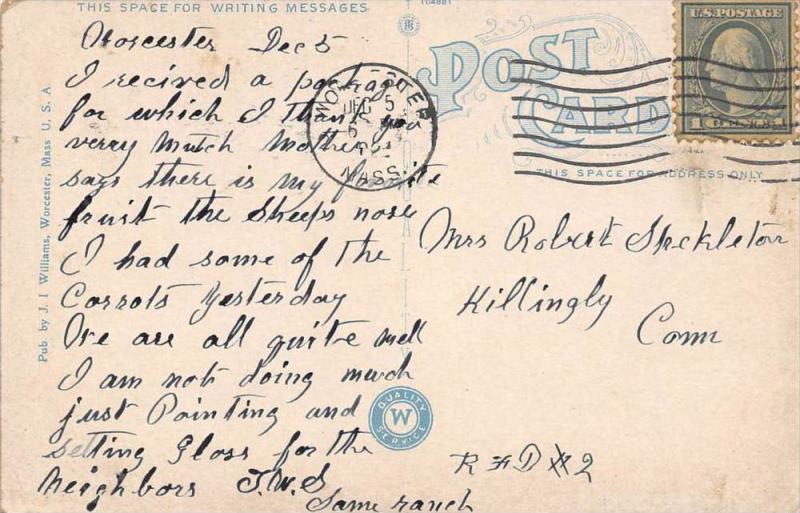 THIS SPACE FOR WRITING MESSAGES
104881
Worcester Dec 5
I recived a package
for which I thank you
verry mutch Mother
says there is my favrite
fruit the Sheeps nose
I had some of the
Carrots Yesterday
We are all quite well
I am not doing much
just Painting and
setting Glass for the
neighbors J.W.S
Same ranch
Pub. by J. I Williams, Worcester, Mass U. S. A
POST
CARD
THIS SPACE FOR ADDRESS ONLY
U.S. POSTAGE
1 CENT 1
WORCESTER
DEC 5
MASS.
Mrs Robert Sheckleton
Killingly
Conn
R F D #2
QUALITY
W
SERVICE